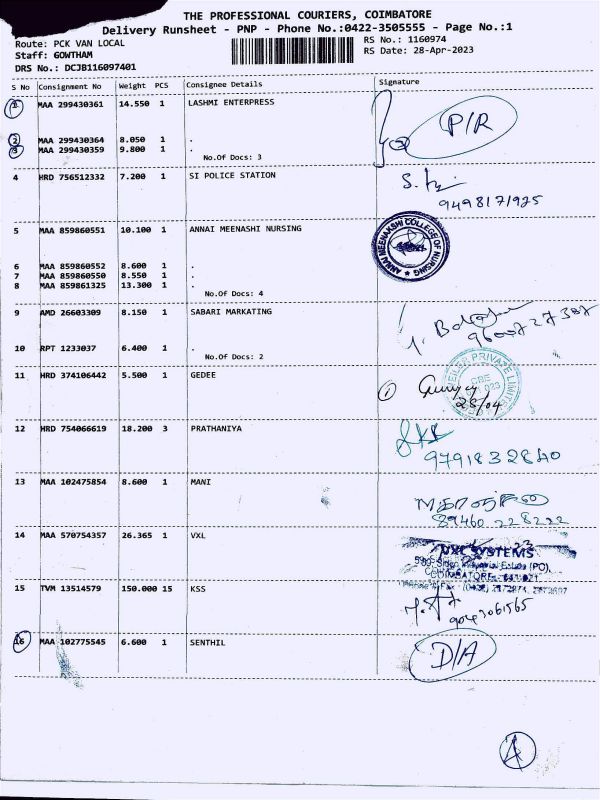 THE PROFESSIONAL COURIERS, COIMBATORE
Delivery Runsheet - PNP - Phone No.:0422-3505555 - Page No.:1
Route: PCK VAN LOCAL
RS No.: 1160974
Staff: GOWTHAM
RS Date: 28-Apr-2023
DRS No.: DCJB116097401
S No Consignment No Weight PCS Consignee Details Signature
1 MAA 299430361 14.550 1 LASHMI ENTERPRESS
P/R
2 MAA 299430364 8.050 1 .
3 MAA 299430359 9.800 1 .
No.Of Docs: 3
4 HRD 756512332 7.200 1 SI POLICE STATION
9498171925
5 MAA 859860551 10.100 1 ANNAI MEENASHI NURSING
ANNAI MEENAKSHI COLLEGE OF NURSING
6 MAA 859860552 8.600 1 .
7 MAA 859860550 8.550 1 .
8 MAA 859861325 13.300 1 .
No.Of Docs: 4
9 AMD 26603309 8.150 1 SABARI MARKATING
10 RPT 1233037 6.400 1 .
No.Of Docs: 2
11 HRD 374106442 5.500 1 GEDEE
PRIVATE LIMITED
CBE
1
28/04
12 HRD 754066619 18.200 3 PRATHANIYA
9791832840
13 MAA 102475854 8.600 1 MANI
89460 228222
14 MAA 570754357 26.365 1 VXL
VXL SYSTEMS
Industrial Estate (PO),
COIMBATORE
15 TVM 13514579 150.000 15 KSS
9043061565
16 MAA 102775545 6.600 1 SENTHIL
D/A
4